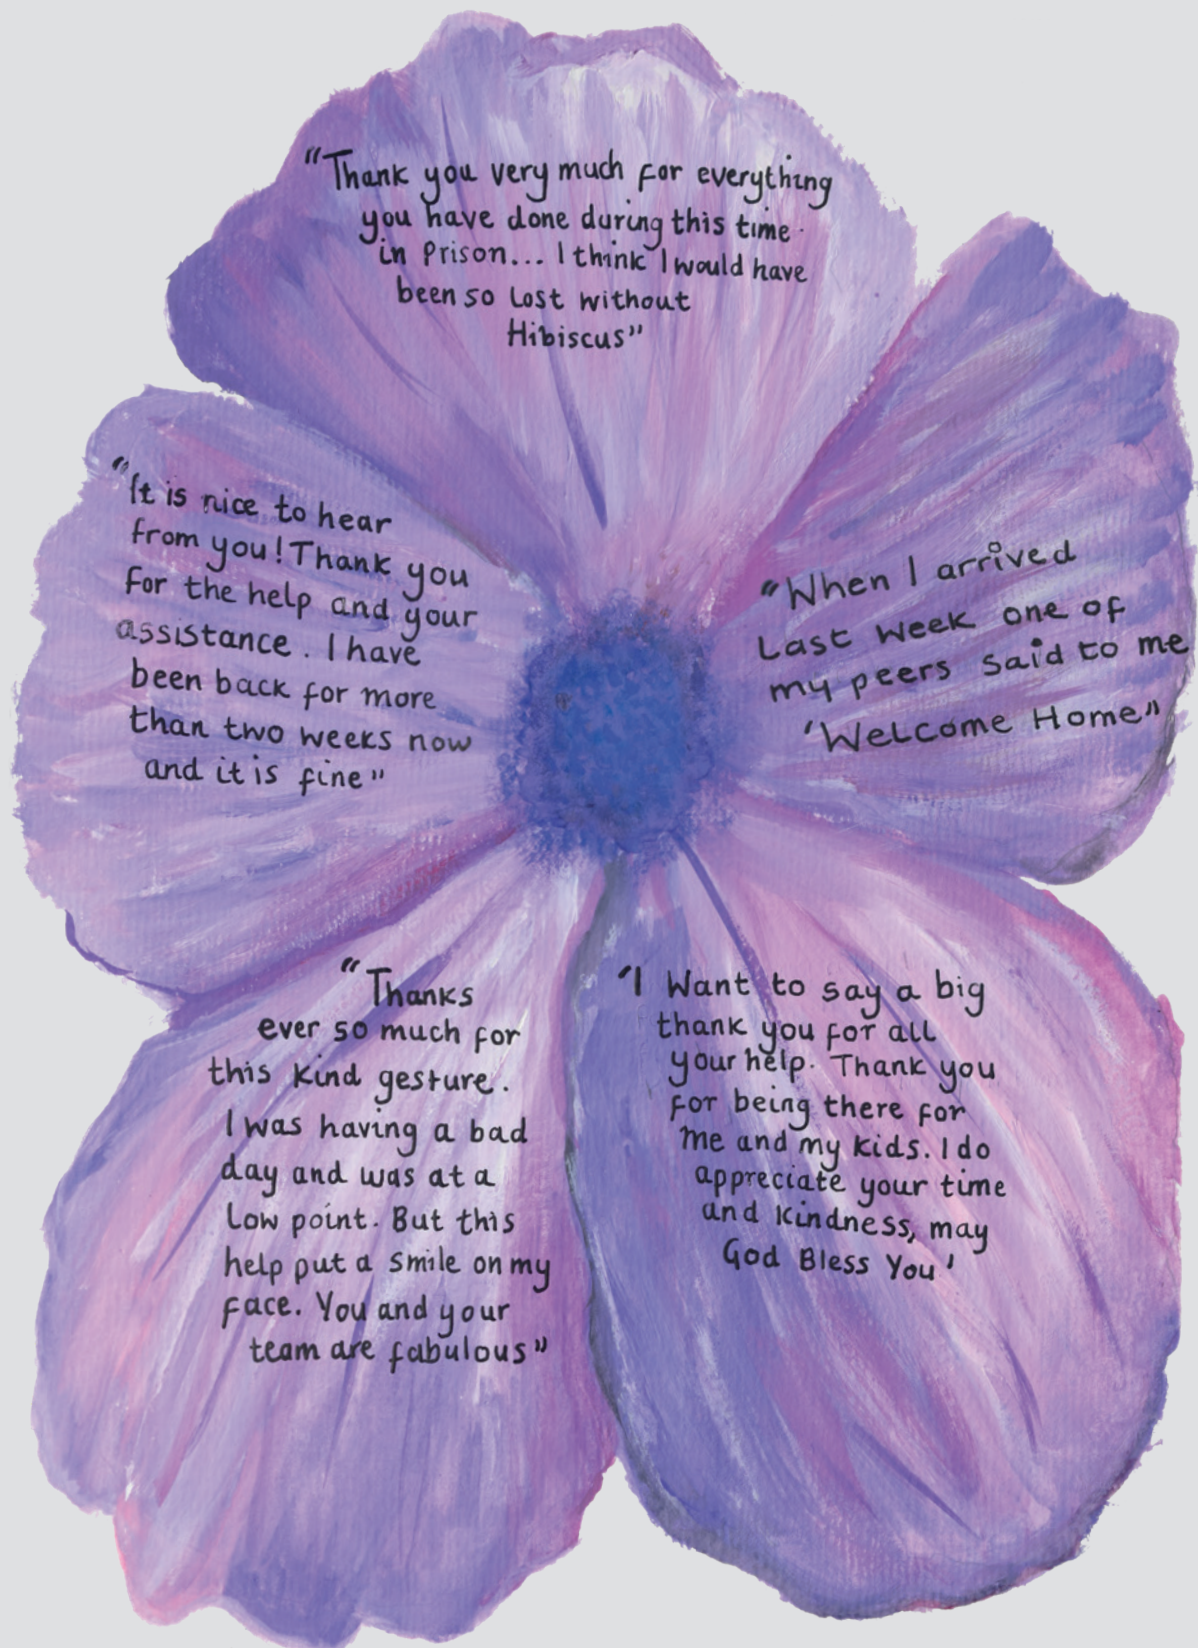 "Thank you very much for everything
you have done during this time
in Prison... I think I would have
been so Lost without
Hibiscus"
"It is nice to hear
from you! Thank you
for the help and your
assistance. I have
been back for more
than two weeks now
and it is fine"
"When I arrived
Last week one of
my peers said to me
'Welcome Home"
"Thanks
ever so much for
this kind gesture.
I was having a bad
day and was at a
Low point. But this
help put a smile on my
face. You and your
team are fabulous"
'I Want to say a big
thank you for all
your help. Thank you
for being there for
me and my kids. I do
appreciate your time
and kindness, may
God Bless You'